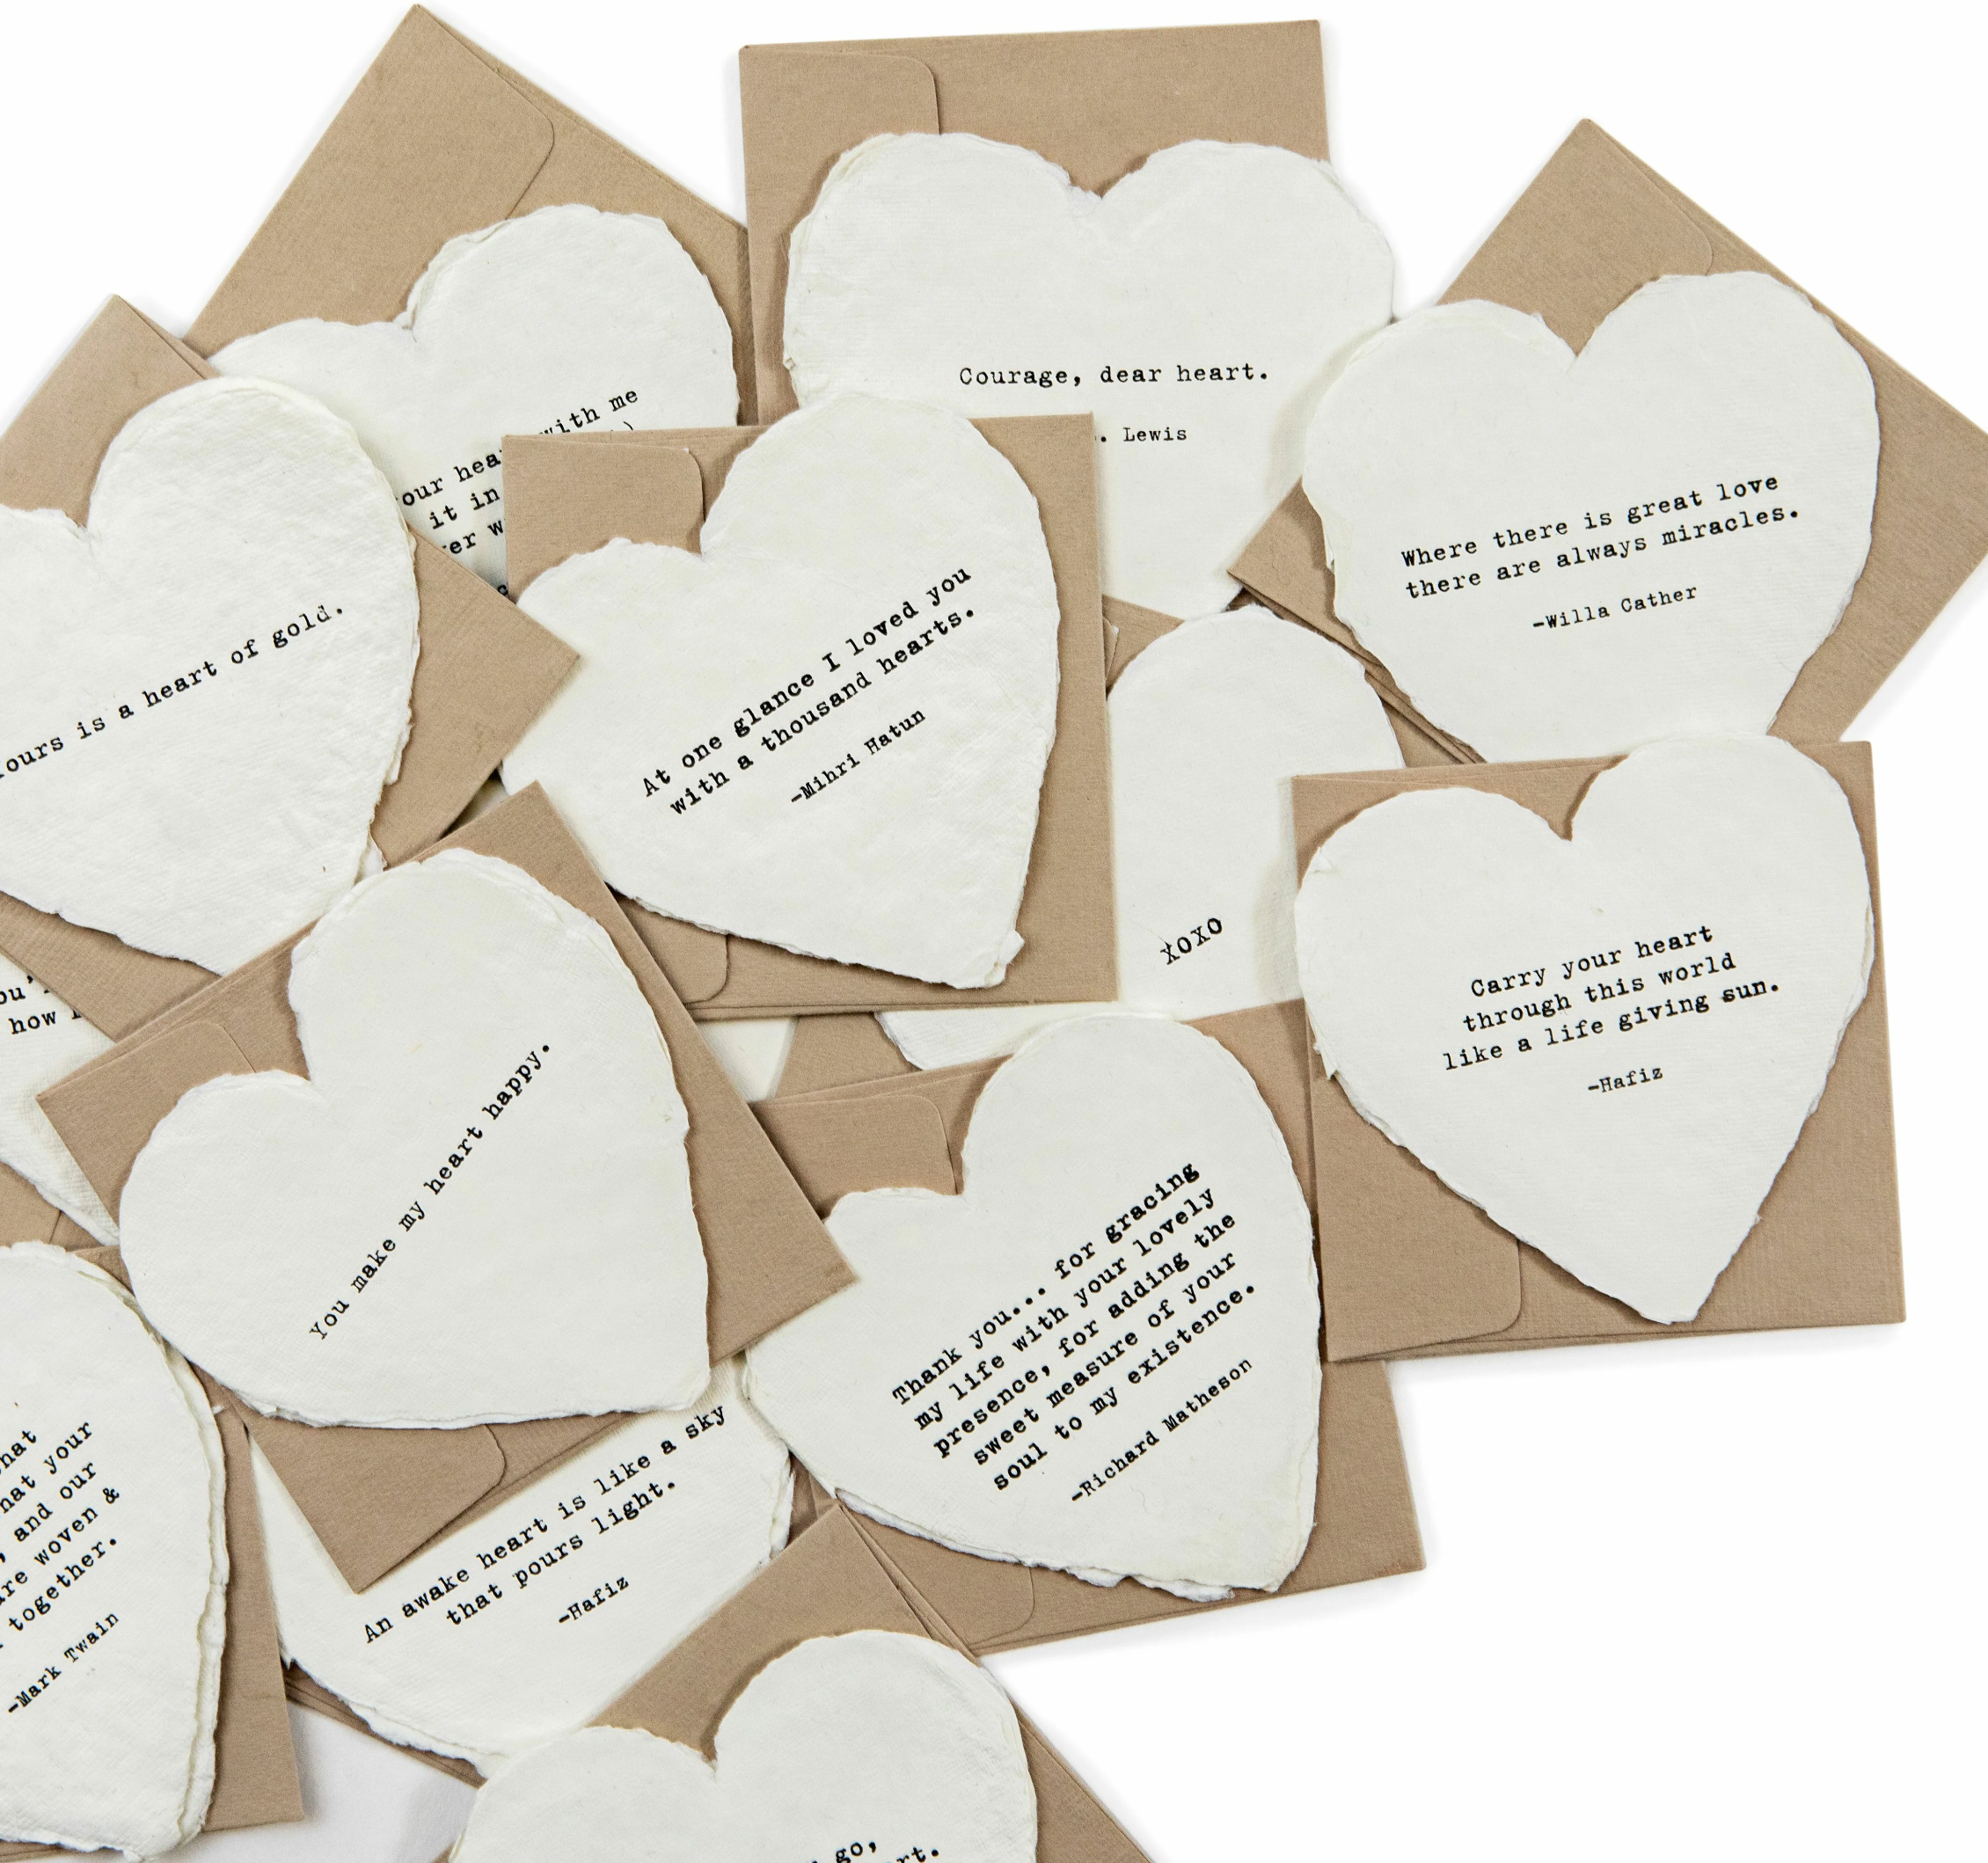 with me
it in
Courage, dear heart.
Lewis
Where there is great love
there are always miracles.
-Willa Cather
is a heart of gold.
At one glance I loved you
with a thousand hearts.
-Mihri Hatun
XOXO
Carry your heart
through this world
like a life giving sun.
-Hafiz
how
You make my heart happy.
Thank you... for gracing
my life with your lovely
presence, for adding the
sweet measure of your
soul to my existence.
-Richard Matheson
your
and our
woven &
together.
-Mark Twain
An awake heart is like a sky
that pours light.
-Hafiz
go,